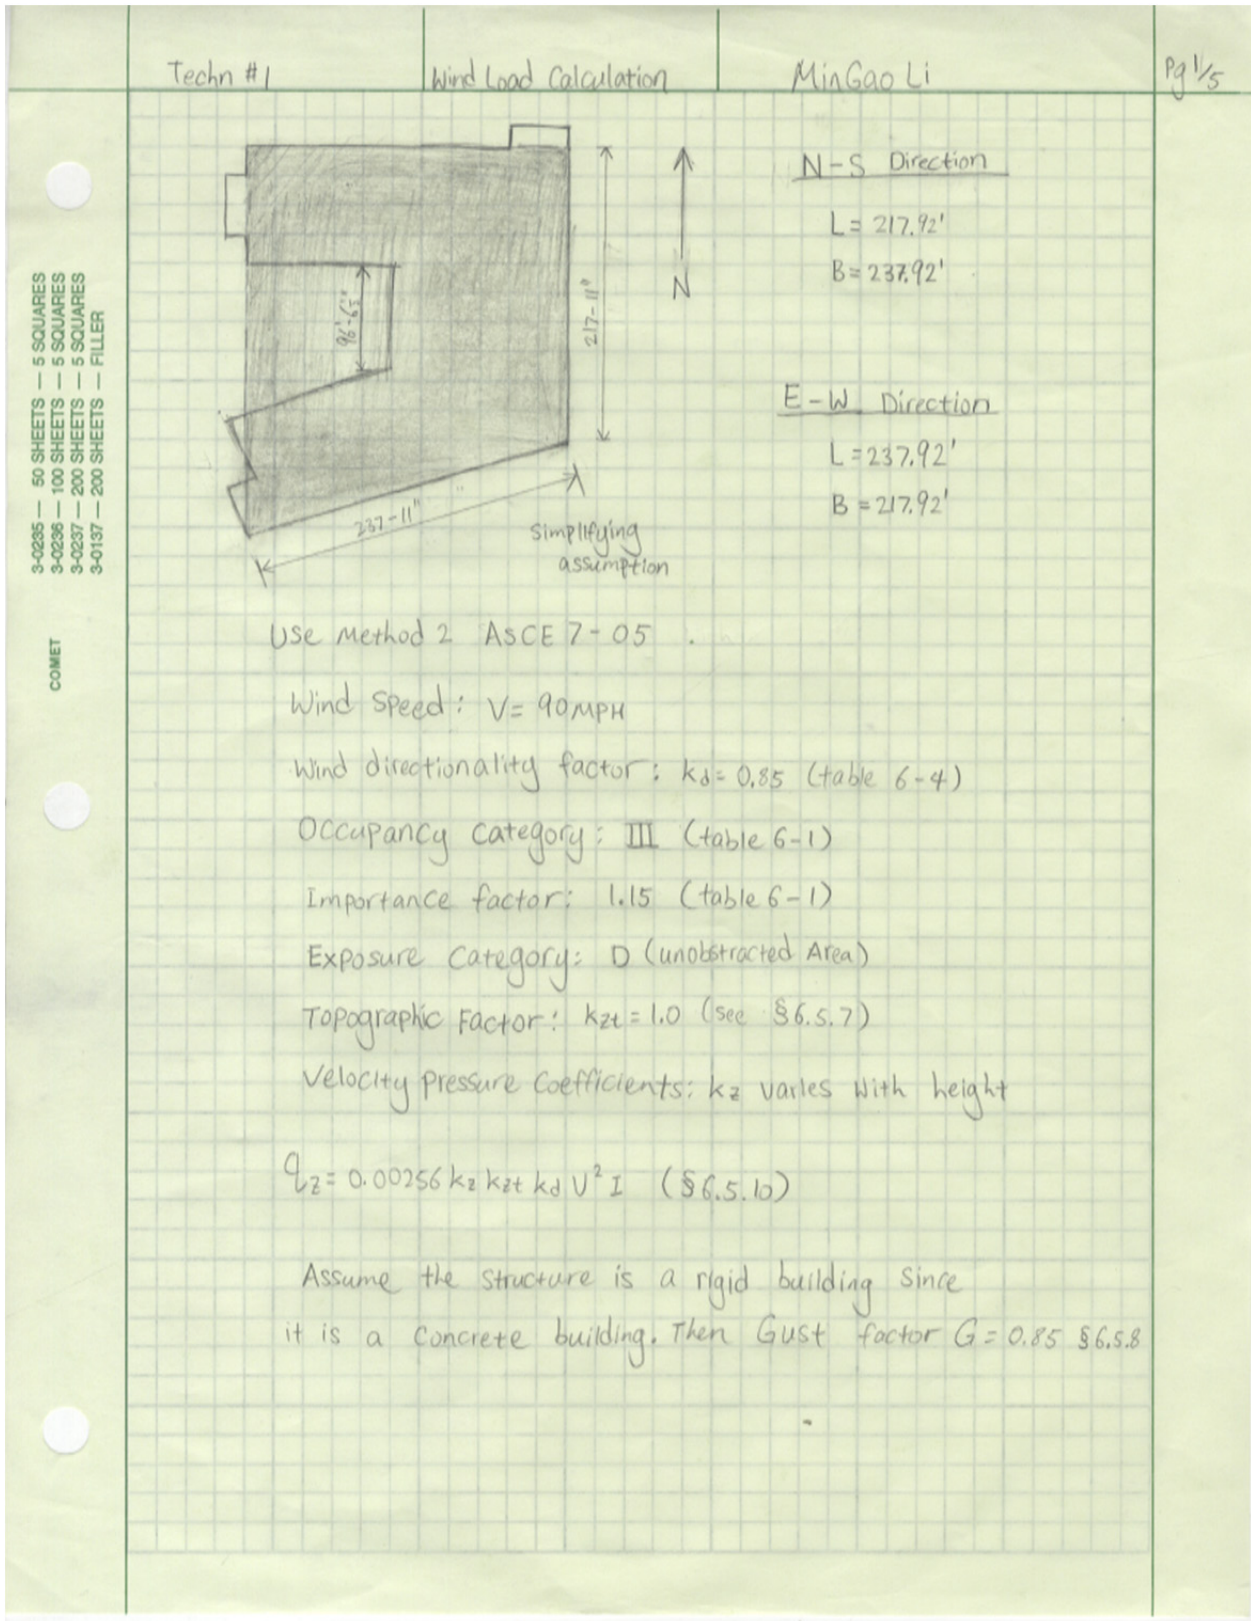 Techn #1
Wind Load Calculation
MinGao Li
Pg 1/5
3-0235 — 50 SHEETS — 5 SQUARES
3-0236 — 100 SHEETS — 5 SQUARES
3-0237 — 200 SHEETS — 5 SQUARES
3-0137 — 200 SHEETS — FILLER
COMET
217-11"
237-11"
simplifying
assumption
N
N-S Direction
L = 217.92'
B = 237.92'
E-W Direction
L = 237.92'
B = 217.92'
Use Method 2 ASCE 7-05
Wind Speed: V= 90MPH
Wind directionality factor: kd= 0.85 (table 6-4)
Occupancy Category: III (table 6-1)
Importance factor: 1.15 (table 6-1)
Exposure Category: D (unobstracted Area)
Topographic Factor: kzt = 1.0 (see §6.5.7)
Velocity Pressure Coefficients: kz varies with height
qz= 0.00256 kz kzt kd V² I (§6.5.10)
Assume the structure is a rigid building since
it is a concrete building. Then Gust factor G = 0.85 §6.5.8